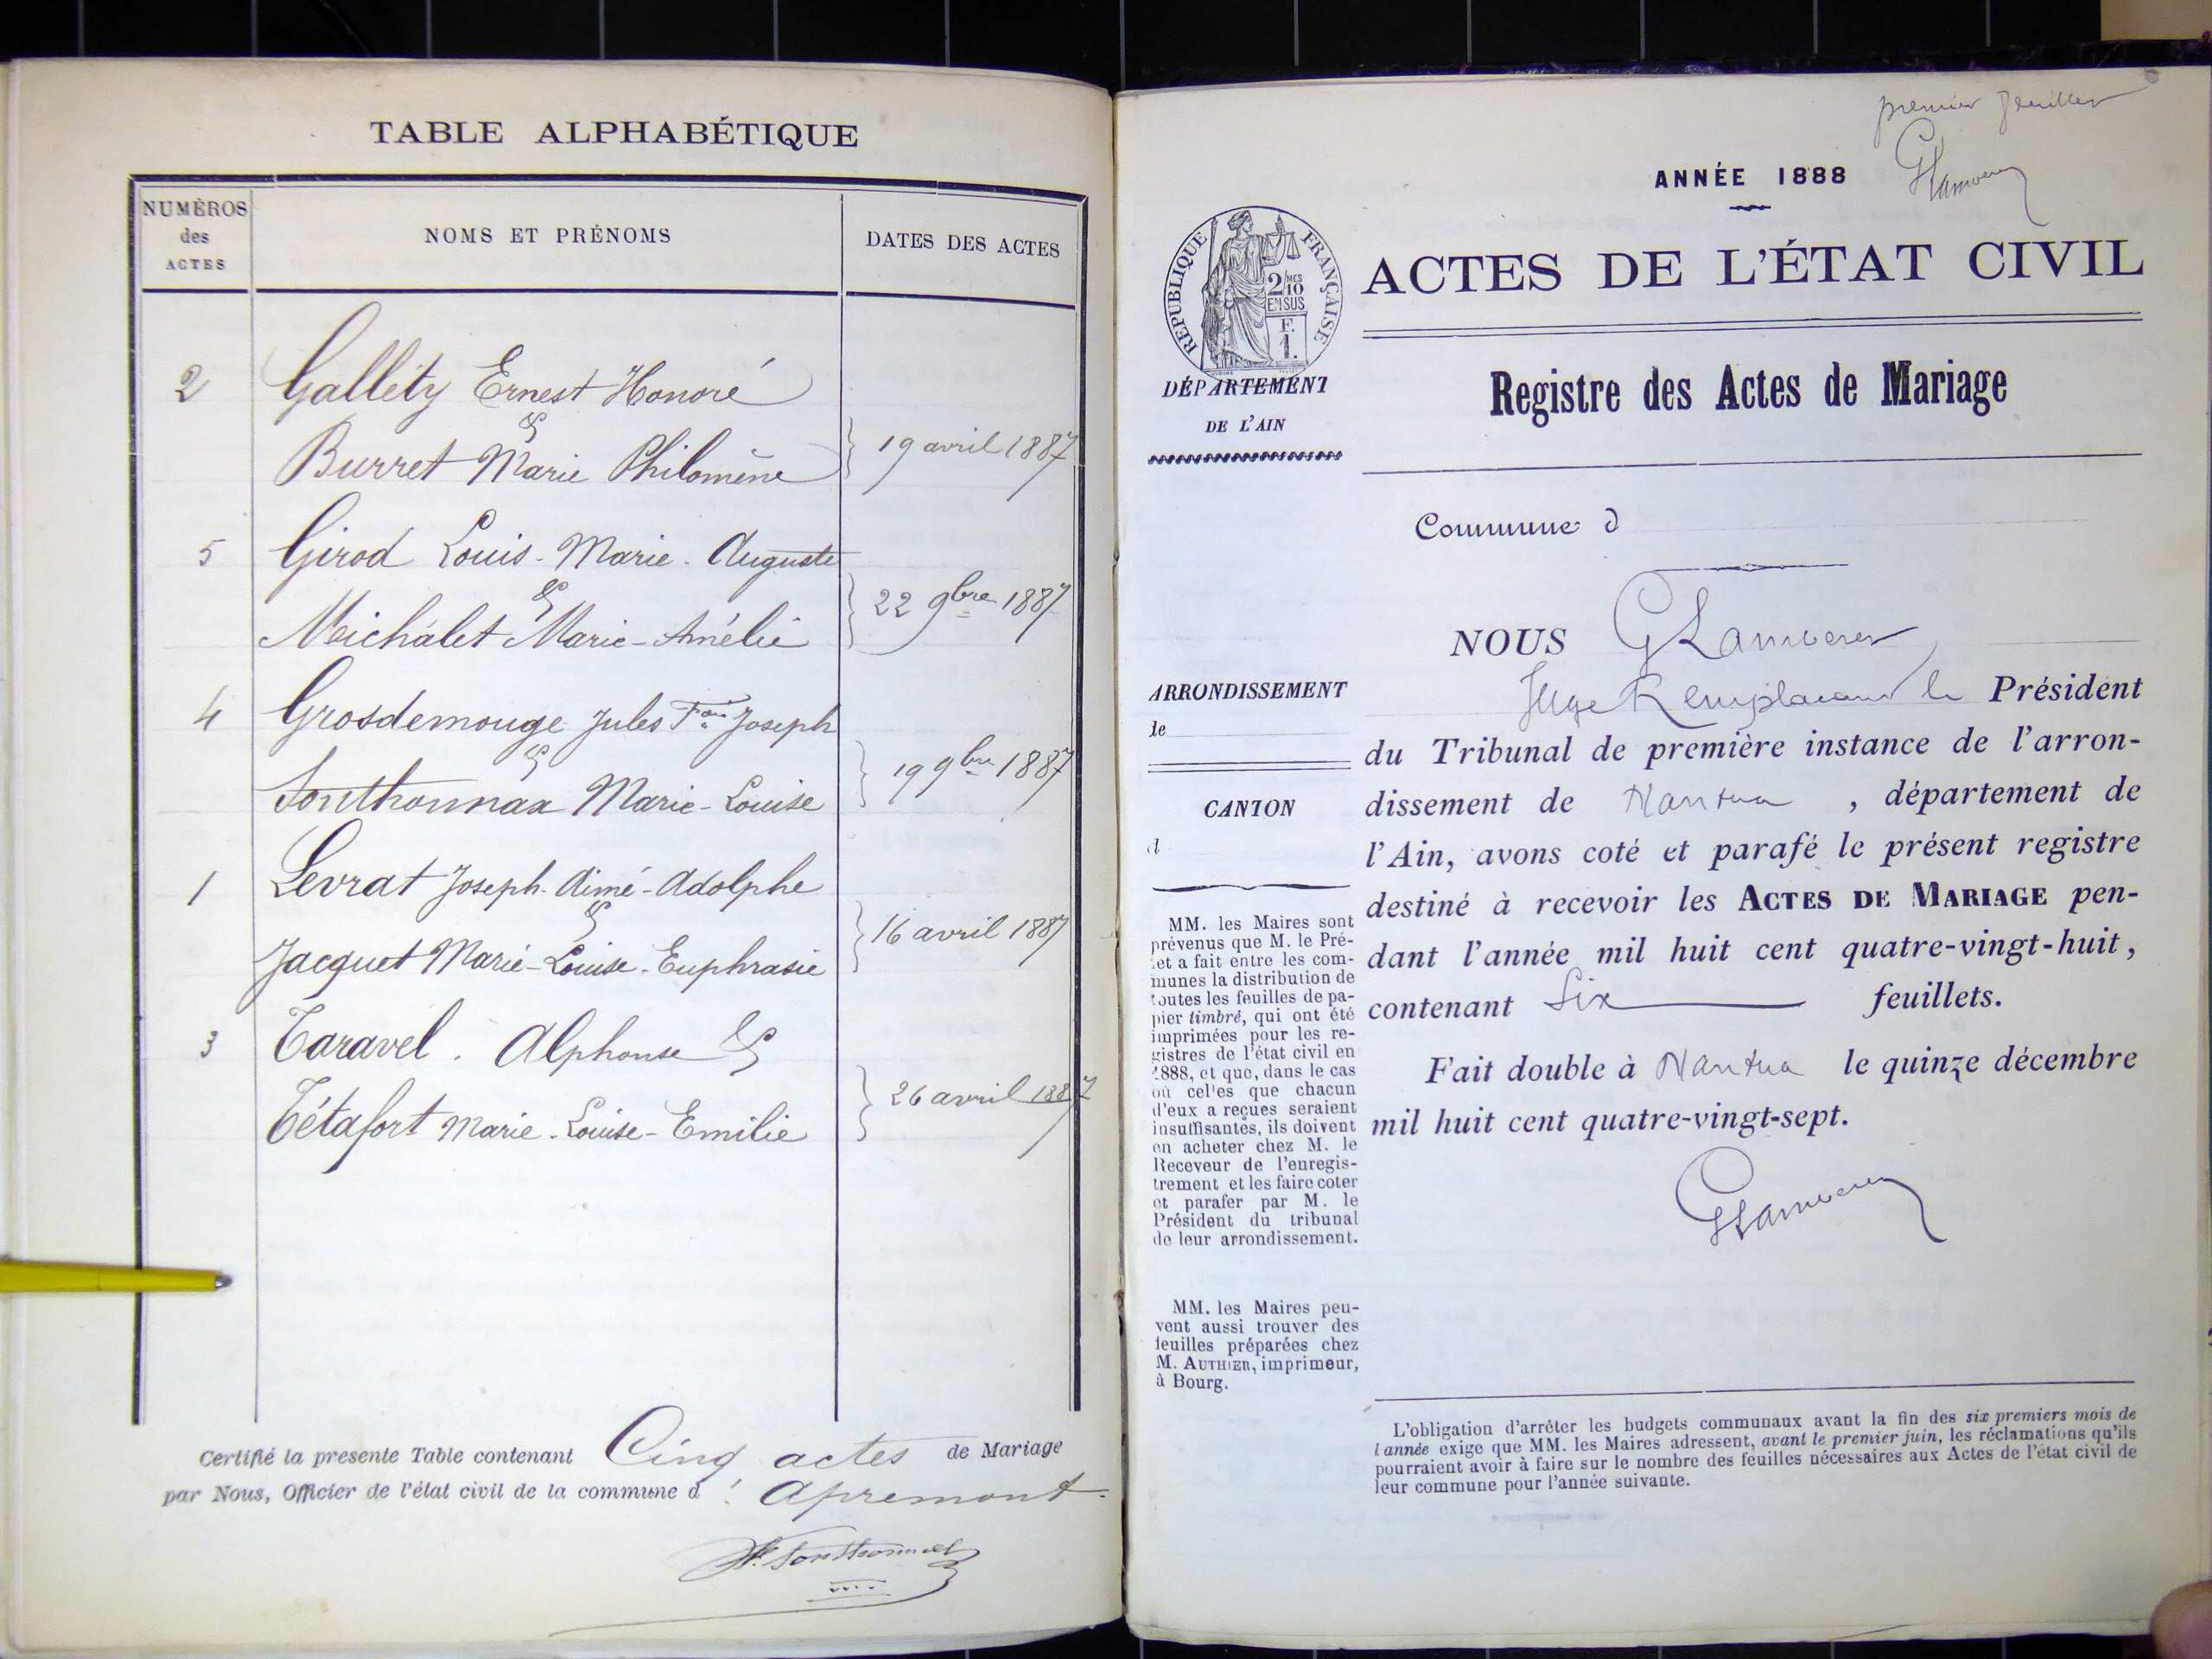 TABLE ALPHABÉTIQUE
NUMÉROS
des
ACTES
NOMS ET PRÉNOMS
DATES DES ACTES
2 Galléty Ernest Honoré
&
Burret Marie Philomène } 19 avril 1887
5 Girod Louis-Marie-Auguste
&
Michalet Marie-Amélie } 22 9bre 1887
4 Grosdemouge Jules Fois Joseph
&
Sonthonnax Marie-Louise } 19 9bre 1887
1 Levrat Joseph-Aimé-Adolphe
&
Jacquet Marie-Louise-Euphrasie } 16 avril 1887
3 Taravel. Alphonse &
Tétafort Marie-Louise-Emilie } 26 avril 1887
Certifié la presente Table contenant Cinq actes de Mariage
par Nous, Officier de l'état civil de la commune d' Apremont.
Sonthonnax
premier feuillet
ANNÉE 1888
RÉPUBLIQUE FRANÇAISE
2/10MES
EN SUS
F.
1.
ACTES DE L'ÉTAT CIVIL
DÉPARTEMENT
DE L'AIN
Registre des Actes de Mariage
Commune d
NOUS
ARRONDISSEMENT
de
Juge Remplaçant le Président
du Tribunal de première instance de l'arron-
dissement de Nantua, département de
l'Ain, avons coté et parafé le présent registre
destiné à recevoir les ACTES DE MARIAGE pen-
dant l'année mil huit cent quatre-vingt-huit,
contenant Six feuillets.
Fait double à Nantua le quinze décembre
mil huit cent quatre-vingt-sept.
CANTON
d
MM. les Maires sont
prévenus que M. le Pré-
fet a fait entre les com-
munes la distribution de
toutes les feuilles de pa-
pier timbré, qui ont été
imprimées pour les re-
gistres de l'état civil en
1888, et que, dans le cas
où celles que chacun
d'eux a reçues seraient
insuffisantes, ils doivent
en acheter chez M. le
Receveur de l'enregis-
trement et les faire coter
et parafer par M. le
Président du tribunal
de leur arrondissement.
MM. les Maires peu-
vent aussi trouver des
feuilles préparées chez
M. AUTHIER, imprimeur,
à Bourg.
L'obligation d'arrêter les budgets communaux avant la fin des six premiers mois de
l'année exige que MM. les Maires adressent, avant le premier juin, les réclamations qu'ils
pourraient avoir à faire sur le nombre des feuilles nécessaires aux Actes de l'état civil de
leur commune pour l'année suivante.